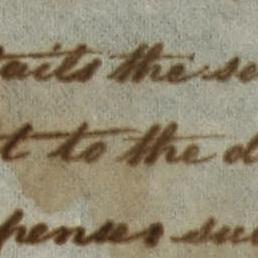 taits the se
t to the d
penses suc